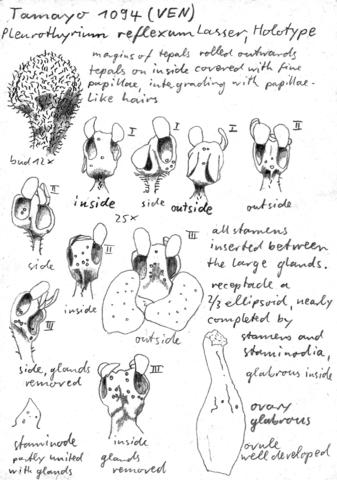 Tamayo 1094 (VEN)
Pleurothyrium reflexum Lasser, Holotype
magins of tepals rolled outwards
tepals on inside covered with fine
papillae, intergrading with papillae-
like hairs
bud 12x
I
I
I
II
inside
side
outside
outside
25x
II
side
II
inside
III
outside
all stamens
inserted between
the large glands.
receptacle a
2/3 ellipsoid, nearly
completed by
stamens and
staminodia,
glabrous inside
III
side, glands
removed
III
inside
glands
removed
staminode
partly united
with glands
ovary
glabrous
ovule
well developed